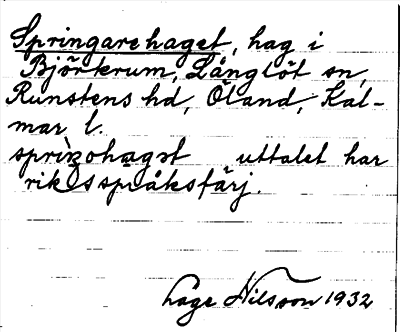 Springarehaget, hag i
Björkrum, Långlöt sn,
Runstens hd, Öland, Kal-
mar l.
uttalet har
riksspråksfärj.
Lage Nilsson 1932